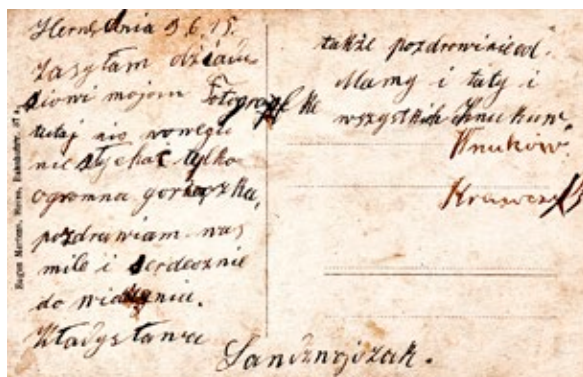 Herne, dnia 9.6.15.
Zasyłam dziadu
siowi mojom Fotografke
tutaj nic nowego
nie słychać tylko
ogromna gorączka,
pozdrawiam was
mile i serdecznie
do widzenia.
Władysława
także pozdrowinie od
Mamy i taty i
wszystkich
Wnuków.
Eugen Mertens, Herne, Bahnhofstr.